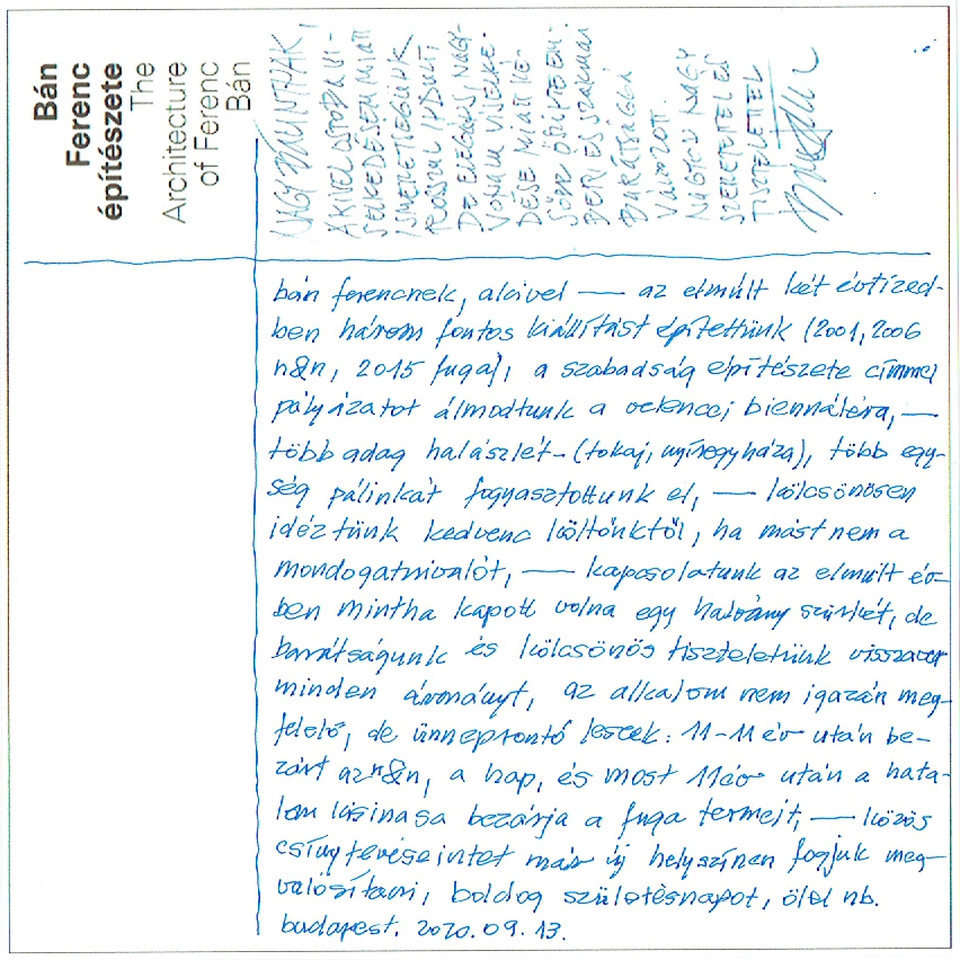 Bán
Ferenc
építészete
The
Architecture
of Ferenc
Bán
NAGY BÁLINTNAK,
AKIVEL OSTOBA VI-
SELKEDÉSEM MIATT
ISMERETSÉGÜNK
ROSSZUL INDULT
DE ELEGÁNS, NAGY-
VONALÚ VISELKE-
DÉSE MIATT KÉ-
SŐBB ŐSZINTE EM-
BERI ÉS SZAKMAI
BARÁTSÁGGÁ
VÁLTOZOTT.
NAGYON NAGY
SZERETETTEL ÉS
TISZTELETTEL
bán ferencnek, akivel — az elmúlt két évtized-
ben három fontos kiállítást építettünk (2001, 2006
n&n, 2015 fuga), a szabadság építészete címmel
pályázatot álmodtunk a velencei biennáléra, —
több adag halászlét - (tokaj, nyíregyháza), több egy-
ség pálinkát fogyasztottunk el, — kölcsönösen
idéztünk kedvenc költőnktől, ha mást nem a
mondogatnivalót, — kapcsolatunk az elmúlt év-
ben mintha kapott volna egy halvány szürkét, de
barátságunk és kölcsönös tiszteletünk visszaver
minden árnyányt, az alkalom nem igazán meg-
felelő, de ünneprontó leszek: 11-11 év után be-
zárt az n&n, a hap, és most 11 év után a hata-
lom kisinasa bezárja a fuga termeit, — közös
csínytevéseinket már új helyszínen fogjuk meg-
valósítani, boldog születésnapot, ölel nb.
budapest. 2020.09.13.